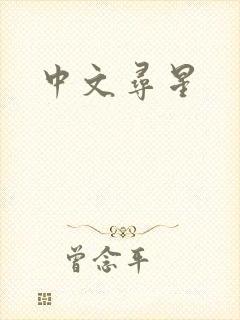 中文尋星
曾念平